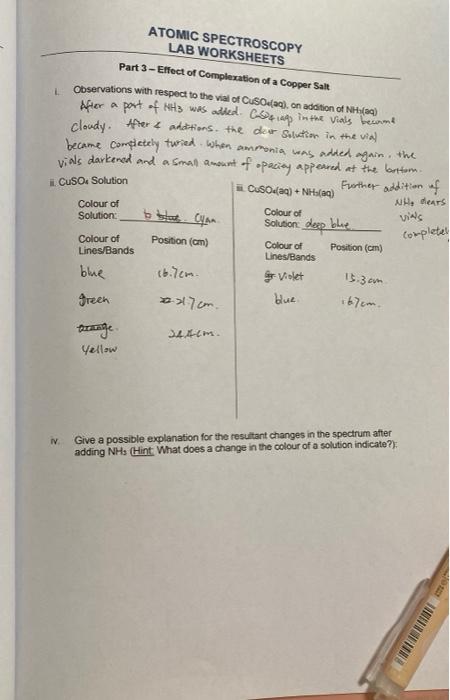 ATOMIC SPECTROSCOPY
LAB WORKSHEETS
Part 3 – Effect of Complexation of a Copper Salt
i. Observations with respect to the vial of CuSO₄(aq), on addition of NH₃(aq)
After a part of NH3 was added. CuSO4 (aq) in the vials became
cloudy. After 2 additions. the clear Solution in the vial
became completely turied. When ammonia was added again, the
vials darkened and a small amount of opacity appeared at the bottom.
Further addition of
NH3 clears
vials
completely
ii. CuSO₄ Solution
Colour of
Solution: blue. Cyan.
Colour of
Lines/Bands Position (cm)
blue 16.7cm.
green 21.7cm.
orange.
Yellow 24.4cm.
iii. CuSO₄(aq) + NH₃(aq)
Colour of
Solution: deep blue
Colour of
Lines/Bands Position (cm)
Violet 15.3cm
blue. 16.7cm.
iv. Give a possible explanation for the resultant changes in the spectrum after
adding NH₃ (Hint: What does a change in the colour of a solution indicate?):